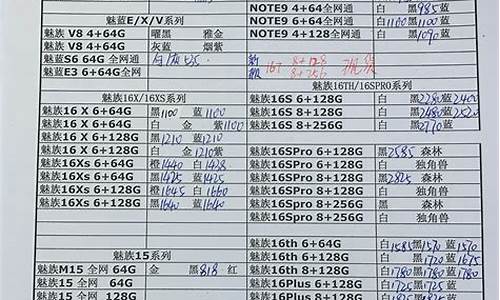 NOTE9 4+64全网通 白 黑985蓝
魅蓝E/X/V系列 NOTE9 6+64全网通 白1100黑1100蓝
魅族 V8 4+64G 曜黑 雅金 NOTE9 4+128全网通 白 黑1090蓝
魅族 V8 4+64G 灰蓝 烟紫
魅蓝S6 64G 全网通
魅蓝E3 6+64G全网通
16T 8+128
8+256
魅族16X/16XS系列 魅族16TH/16SPRO系列
魅族16 X 6+64G 黑1100 蓝1100 魅族16S 6+128G 白 黑2280蓝2400
魅族16 X 6+64G 白 金 紫1100 魅族16S 8+128G 白 黑2480蓝2520
魅族16 X 6+128G 黑1210 蓝1210 魅族16S 8+256G 白 黑2770蓝
魅族16 X 6+128G 白 金1210紫
魅族16Xs 6+64G 橙1440 白1428 魅族16SPro 6+128G 黑2585 森林
魅族16Xs 6+64G 黑1425 蓝1425 魅族16SPro 6+128G 白 独角兽
魅族16Xs 6+128G 橙1645 白1660 魅族16SPro 8+128G 黑2825 森林
魅族16Xs 6+128G 黑1640 蓝1640 魅族16SPro 8+128G 白 独角兽
魅族16SPro 8+256G 黑 森林
魅族16SPro 8+256G 白 独角兽
魅族15系列 魅族16th 6+64G 白1585黑1570蓝1570
魅族M15 全网 64G 金 黑818 红 魅族16th 6+128G 白 黑1720蓝1675
魅族15 全网 64G 魅族16th 8+128G 白1780黑1780蓝1780
魅族15 全网 128G 魅族16Plus 6+128G 白1725黑1725蓝
魅族16Plus 8+128G